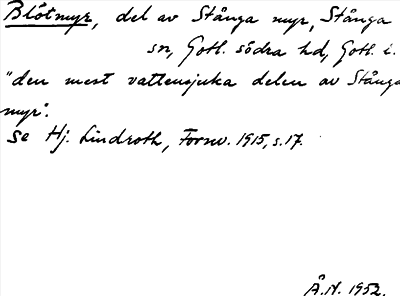 Blötmyr, del av Stånga myr, Stånga
sn, Gotl. södra hd, Gotl. i.
"den mest vattensjuka delen av Stånga
myr".
Se Hj. Lindroth, Fornv. 1915, s. 17.
Å.N. 1952.